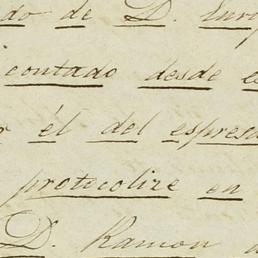 do de D. Enri
contado desde
él del espresa
protocolize en
D. Ramon